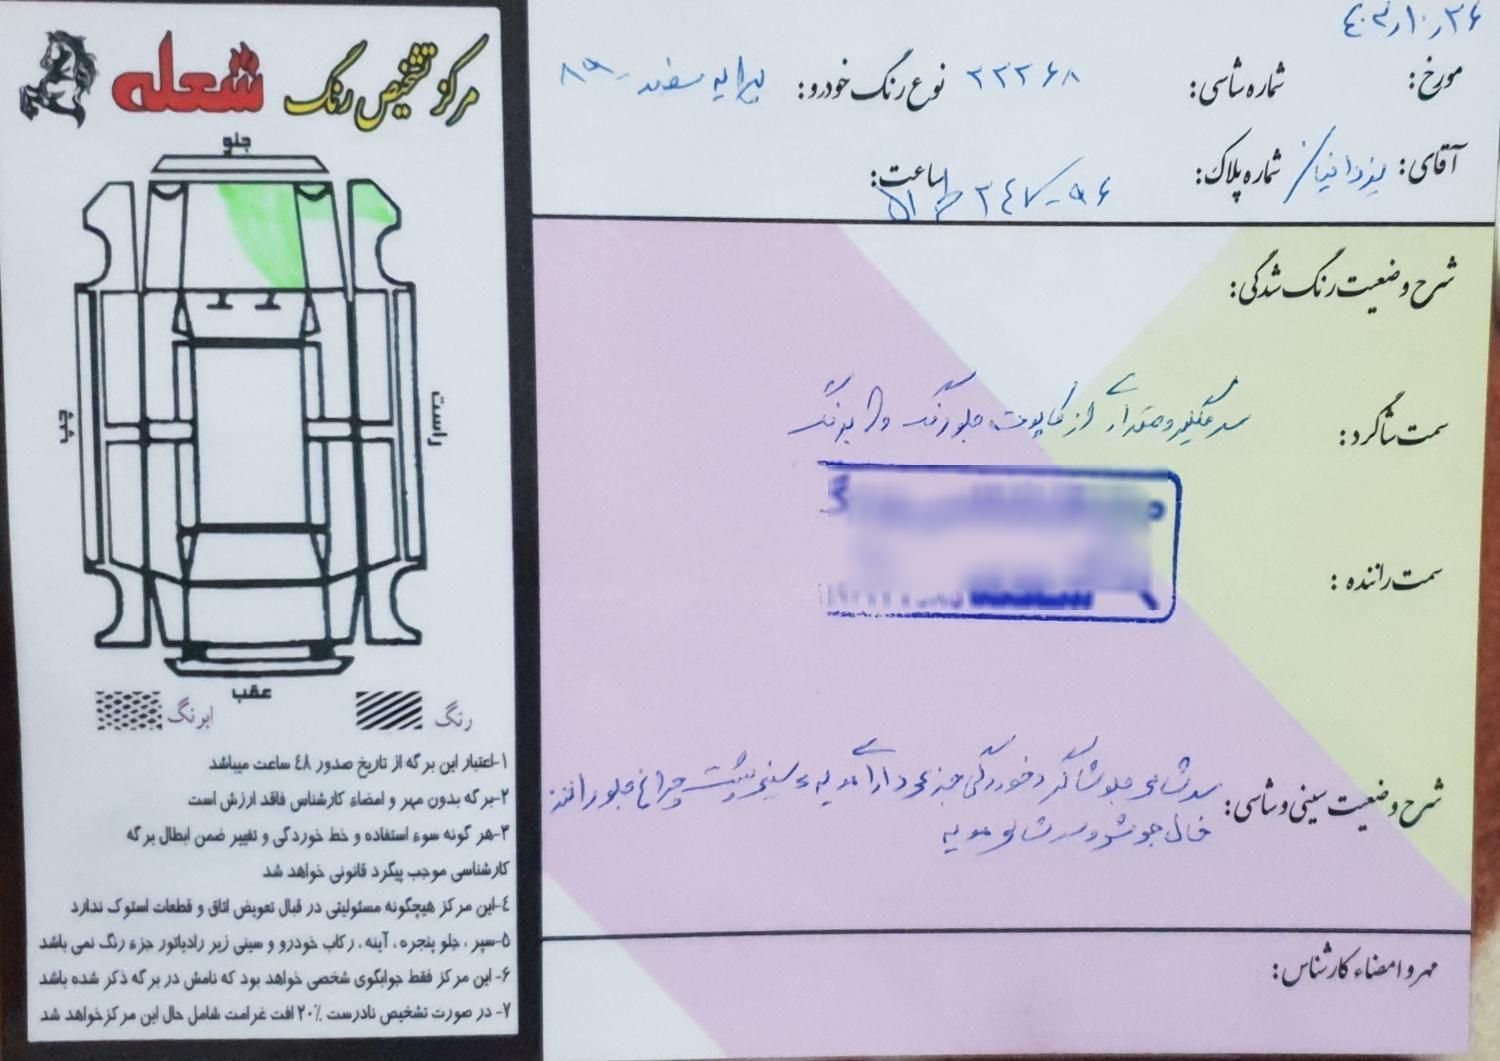 مرکز تشخیص رنگ شعله
جلو
راست
چپ
عقب
رنگ
ابرنگ
۱-اعتبار این برگه از تاریخ صدور ٤٨ ساعت میباشد
۲-برگه بدون مهر و امضاء کارشناس فاقد ارزش است
۳-هر گونه سوء استفاده و خط خوردگی و تغییر ضمن ابطال برگه
کارشناسی موجب پیگرد قانونی خواهد شد
٤-این مرکز هیچگونه مسئولیتی در قبال تعویض اتاق و قطعات استوک ندارد
۵-سپر ، جلو پنجره ، آینه ، رکاب خودرو و سینی زیر رادیاتور جزء رنگ نمی باشد
۶- این مرکز فقط جوابگوی شخصی خواهد بود که نامش در برگه ذکر شده باشد
۷- در صورت تشخیص نادرست ۲۰٪ افت غرامت شامل حال این مرکز خواهد شد
مورخ: ۴۰۳/۱۰/۲۶ شماره شاسی: ۲۲۲۶۸ نوع رنگ خودرو: پراید سفید ۸۹
آقای: یزدانیان شماره پلاک: ۹۶-۲۴۷ ط ۵۱ ساعت:
شرح وضعیت رنگ شدگی:
سمت شاگرد: گلگیر و مقداری از کاپوت جلو رنگ و ابرنگ
سمت راننده :
شرح وضعیت سینی و شاسی: سرشاسی جلو شاگرد خوردگی جزئی دارای مویه و سینی پشت چراغ جلو راننده
خال جوش و سرشاسی مویه
مهر و امضاء کارشناس: